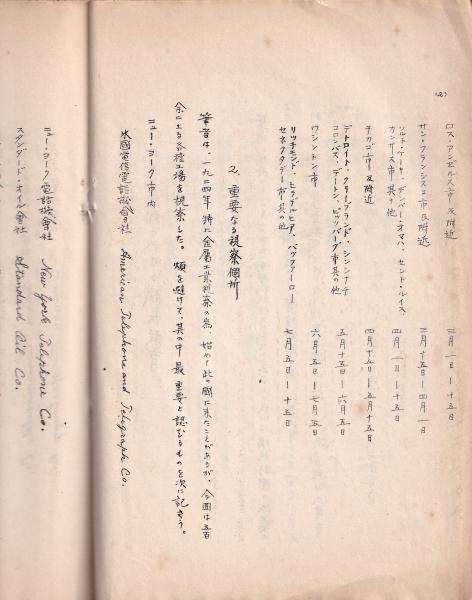 (2)
ロス・アンゼルス市及附近 三月一日―十五日
サン・フランシスコ市及附近 三月十五日―四月一日
ソルト・レーキ、デンバー、オマハ、セント・ルイス、
カンサス市其の他 四月一日―十五日
チカゴ市及附近 四月十五日―五月十五日
デトロイト・クリーブランド・シンシナチ
コロンバス、デートン、ピッツバーグ市其の他 五月十五日―六月五日
ワシントン市 六月五日―七月五日
リッチモンド、ヒラデルヒア、バッファーロー
セネクタデー市其の他 七月五日―十五日
2. 重要なる視察個所
筆者は、一九一四年特に金属工業視察の為、始めて此の國に来たことがあるが、今回は五百
余に上る各種工場を視察した。煩を避けて、其の中最重要と認むるものを次に記さう。
ニュー・ヨーク市内
米國電信電話會社 American Telephone and Telegraph Co.
ニュー・ヨーク電話會社 New York Telephone Co.
スタンダード・オイル會社 Standard Oil Co.